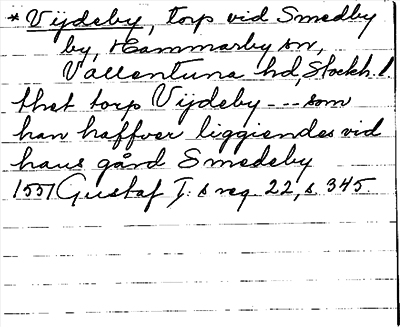 * Vijdeby, torp vid Smedby
by, Hammarby sn,
Vallentuna hd, Stockh. l.
thet torp Vijdeby --- som
han haffver liggiendes vid
hans gård Smedeby
1551 Gustaf I:s reg 22, s. 345.